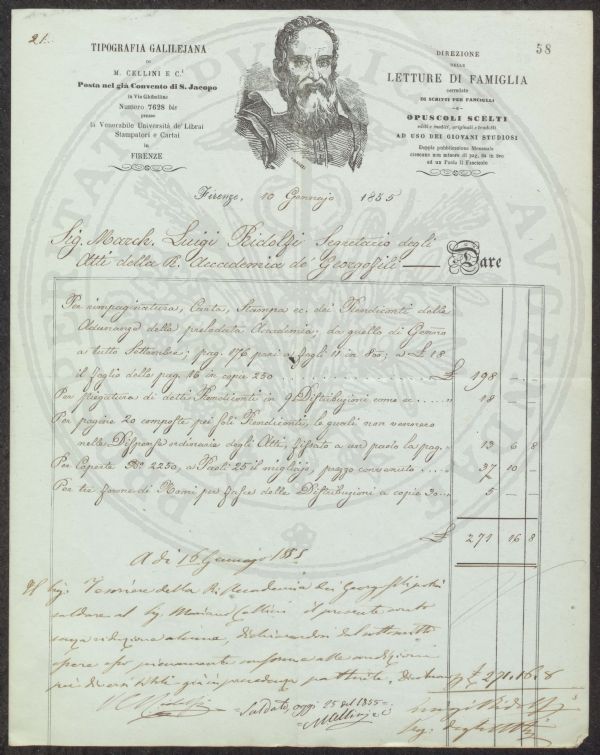 21.
58
TIPOGRAFIA GALILEJANA
DI
M. CELLINI E C.i
Posta nel già Convento di S. Jacopo
in Via Ghibellina
Numero 7628 bis
presso
la Venerabile Università de' Librai
Stampatori e Cartai
in
FIRENZE
DIREZIONE
DELLE
LETTURE DI FAMIGLIA
corredate
DI SCRITTI PER FANCIULLI
E
OPUSCOLI SCELTI
editi e inediti, originali e tradotti
AD USO DEI GIOVANI STUDIOSI
Doppia pubblicazione Mensuale
ciascuna non minore di pag. 64 in 8vo
ad un Paolo il Fascicolo
Firenze, 10 Gennajo 1855
Sig. March. Luigi Ridolfi Segretario degli
Atti della R. Accademia de' Georgofili — Dare
Per rimpaginatura, Carta, Stampa ec. dei Rendiconti delle
Adunanze della prelodata Accademia, da quello di Genn.o
a tutto Settembre; pag. 176 pari a fogli 11 in 8vo; a £ 18
il foglio delle pag. 16 in copie 250 £ 198 — —
Per piegatura di detti Rendiconti in 9 Distribuzioni come ec. " 18 — —
Per pagine 20 composte pei soli Rendiconti, le quali non vennero
nelle Dispense ordinarie degli Atti, fissato a un paolo la pag. " 13 6 8
Per Coperte No 2250, a Paoli 25 il migliajo, prezzo convenuto " 37 10 —
Per tre forme di Nomi per fasce delle Distribuzioni a copie 30 " 5 — —
£ 271 16 8
A dì 16 Gennajo 1855
Il Sig. Tesoriere della R. Accademia dei Georgofili potrà
saldare al Sig. Mariano Cellini il presente conto
senza riduzione alcuna, dichiarandosi dal sottoscritto
essere esso pienamente conforme alle condizioni
£ 271. 16. 8
Saldato, oggi 25 del 1855
MCellini e C.
Luigi Ridolfi
Seg. degli Atti